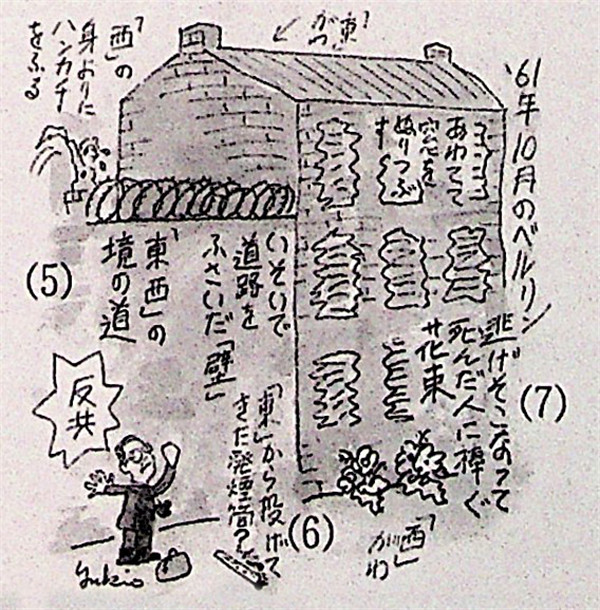 '61年10月のベルリン
「東」
がわ
「西」の
身よりに
ハンカチ
をふる
あわてて
窓を
ぬりつぶ
す
(5)
「東西」の
境の道
いそいで
道路を
ふさいだ「壁」
(7)
逃げそこなって
死んだ人に捧ぐ
花束
反共
「東」から投げて
きた発煙筒?
(6)
「西」
がわ
Yukio